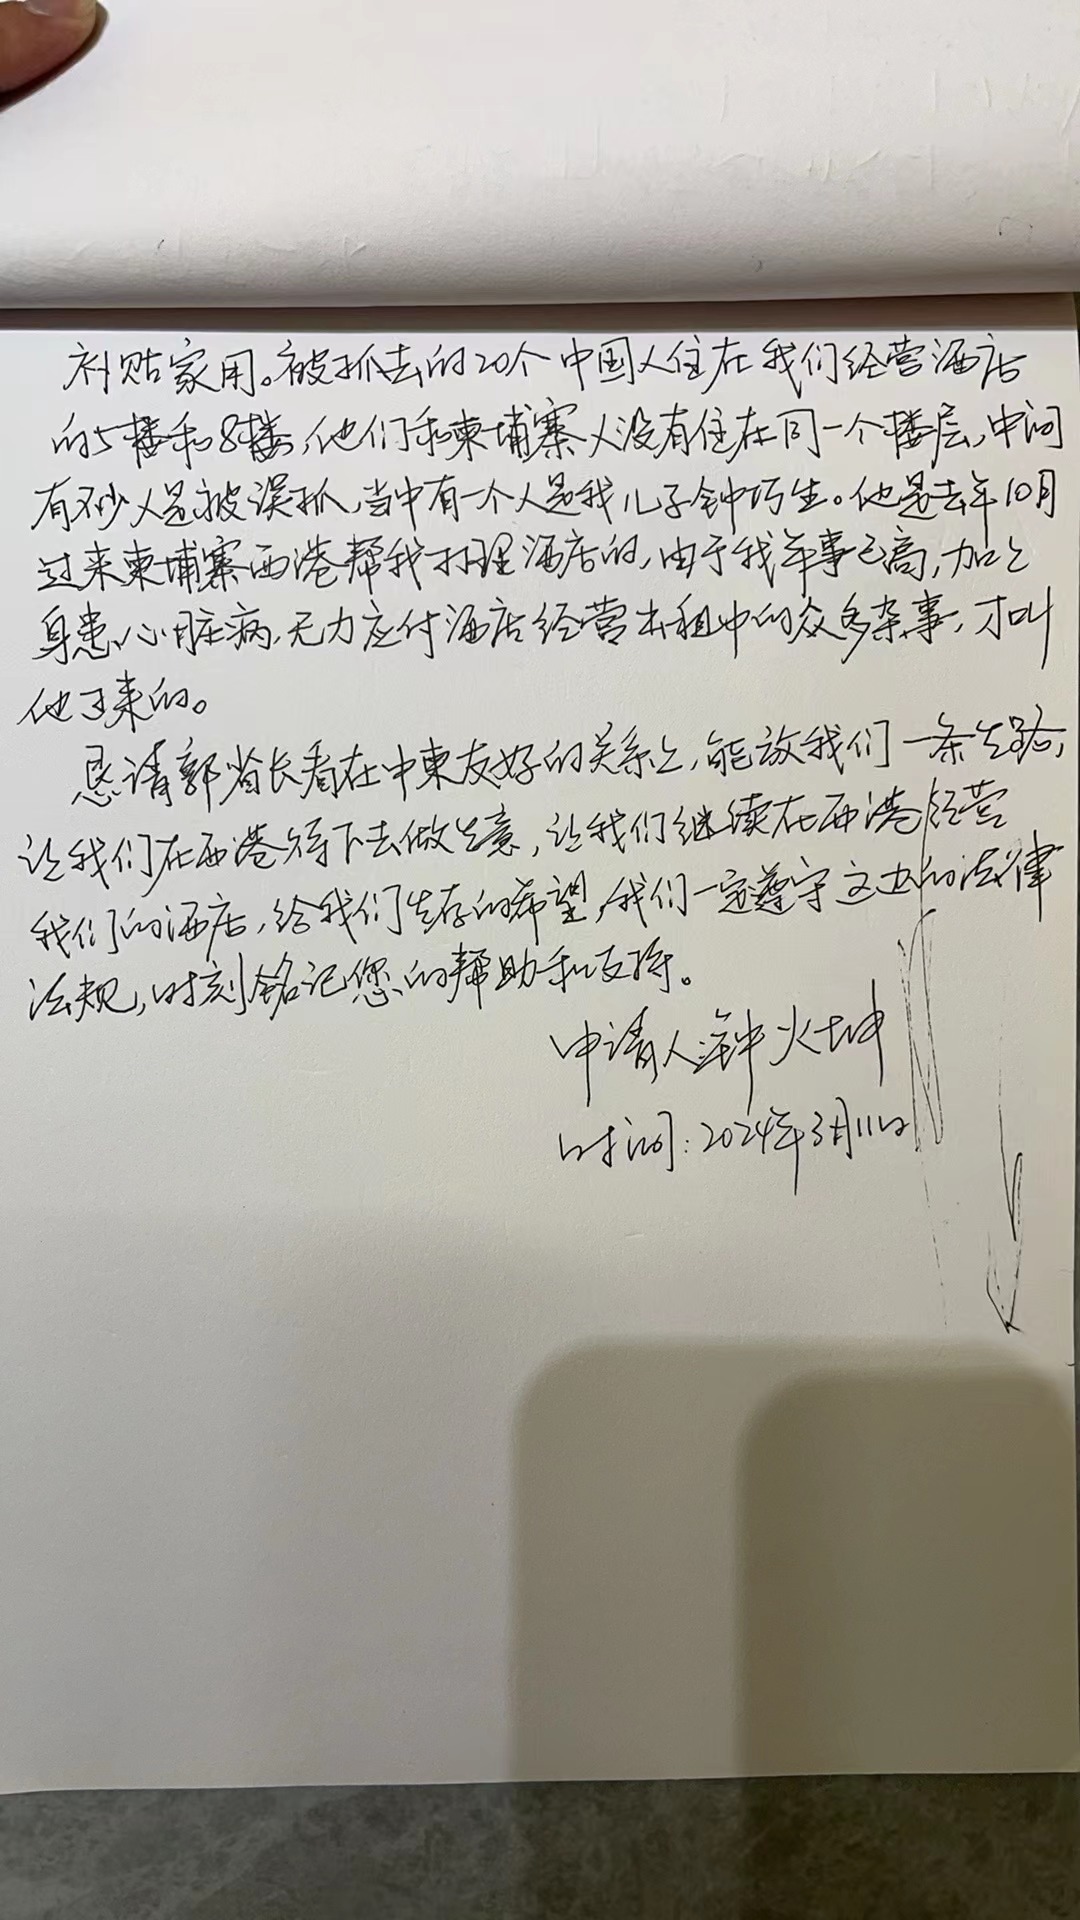 补贴家用。被抓去的20个中国人住在我们经营酒店
的5楼和8楼,他们和柬埔寨人没有住在同一个楼层,中间
有不少人是被误抓,当中有一个人是我儿子钟巧生。他是去年10月
过来柬埔寨西港帮我打理酒店的,由于我年事已高,加上
身患心脏病,无力应付酒店经营出租中的众多杂事,才叫
他下来的。
恳请郭省长看在中柬友好的关系上,能放我们一条生路,
让我们在西港待下去做生意,让我们继续在西港经营
我们的酒店,给我们生存的希望,我们一定遵守这边的法律
法规,时刻铭记您的帮助和支持。
申请人:钟火坤
时间:2024年3月11日